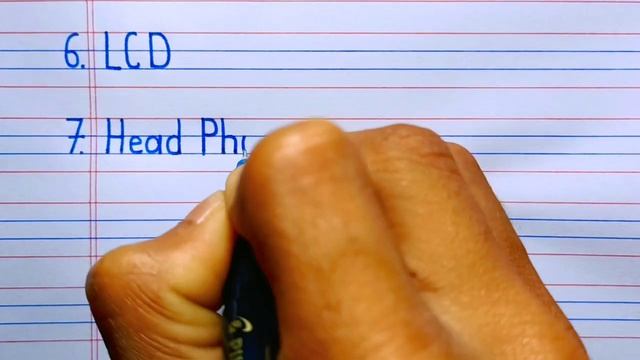 6. LCD
7. Head Ph